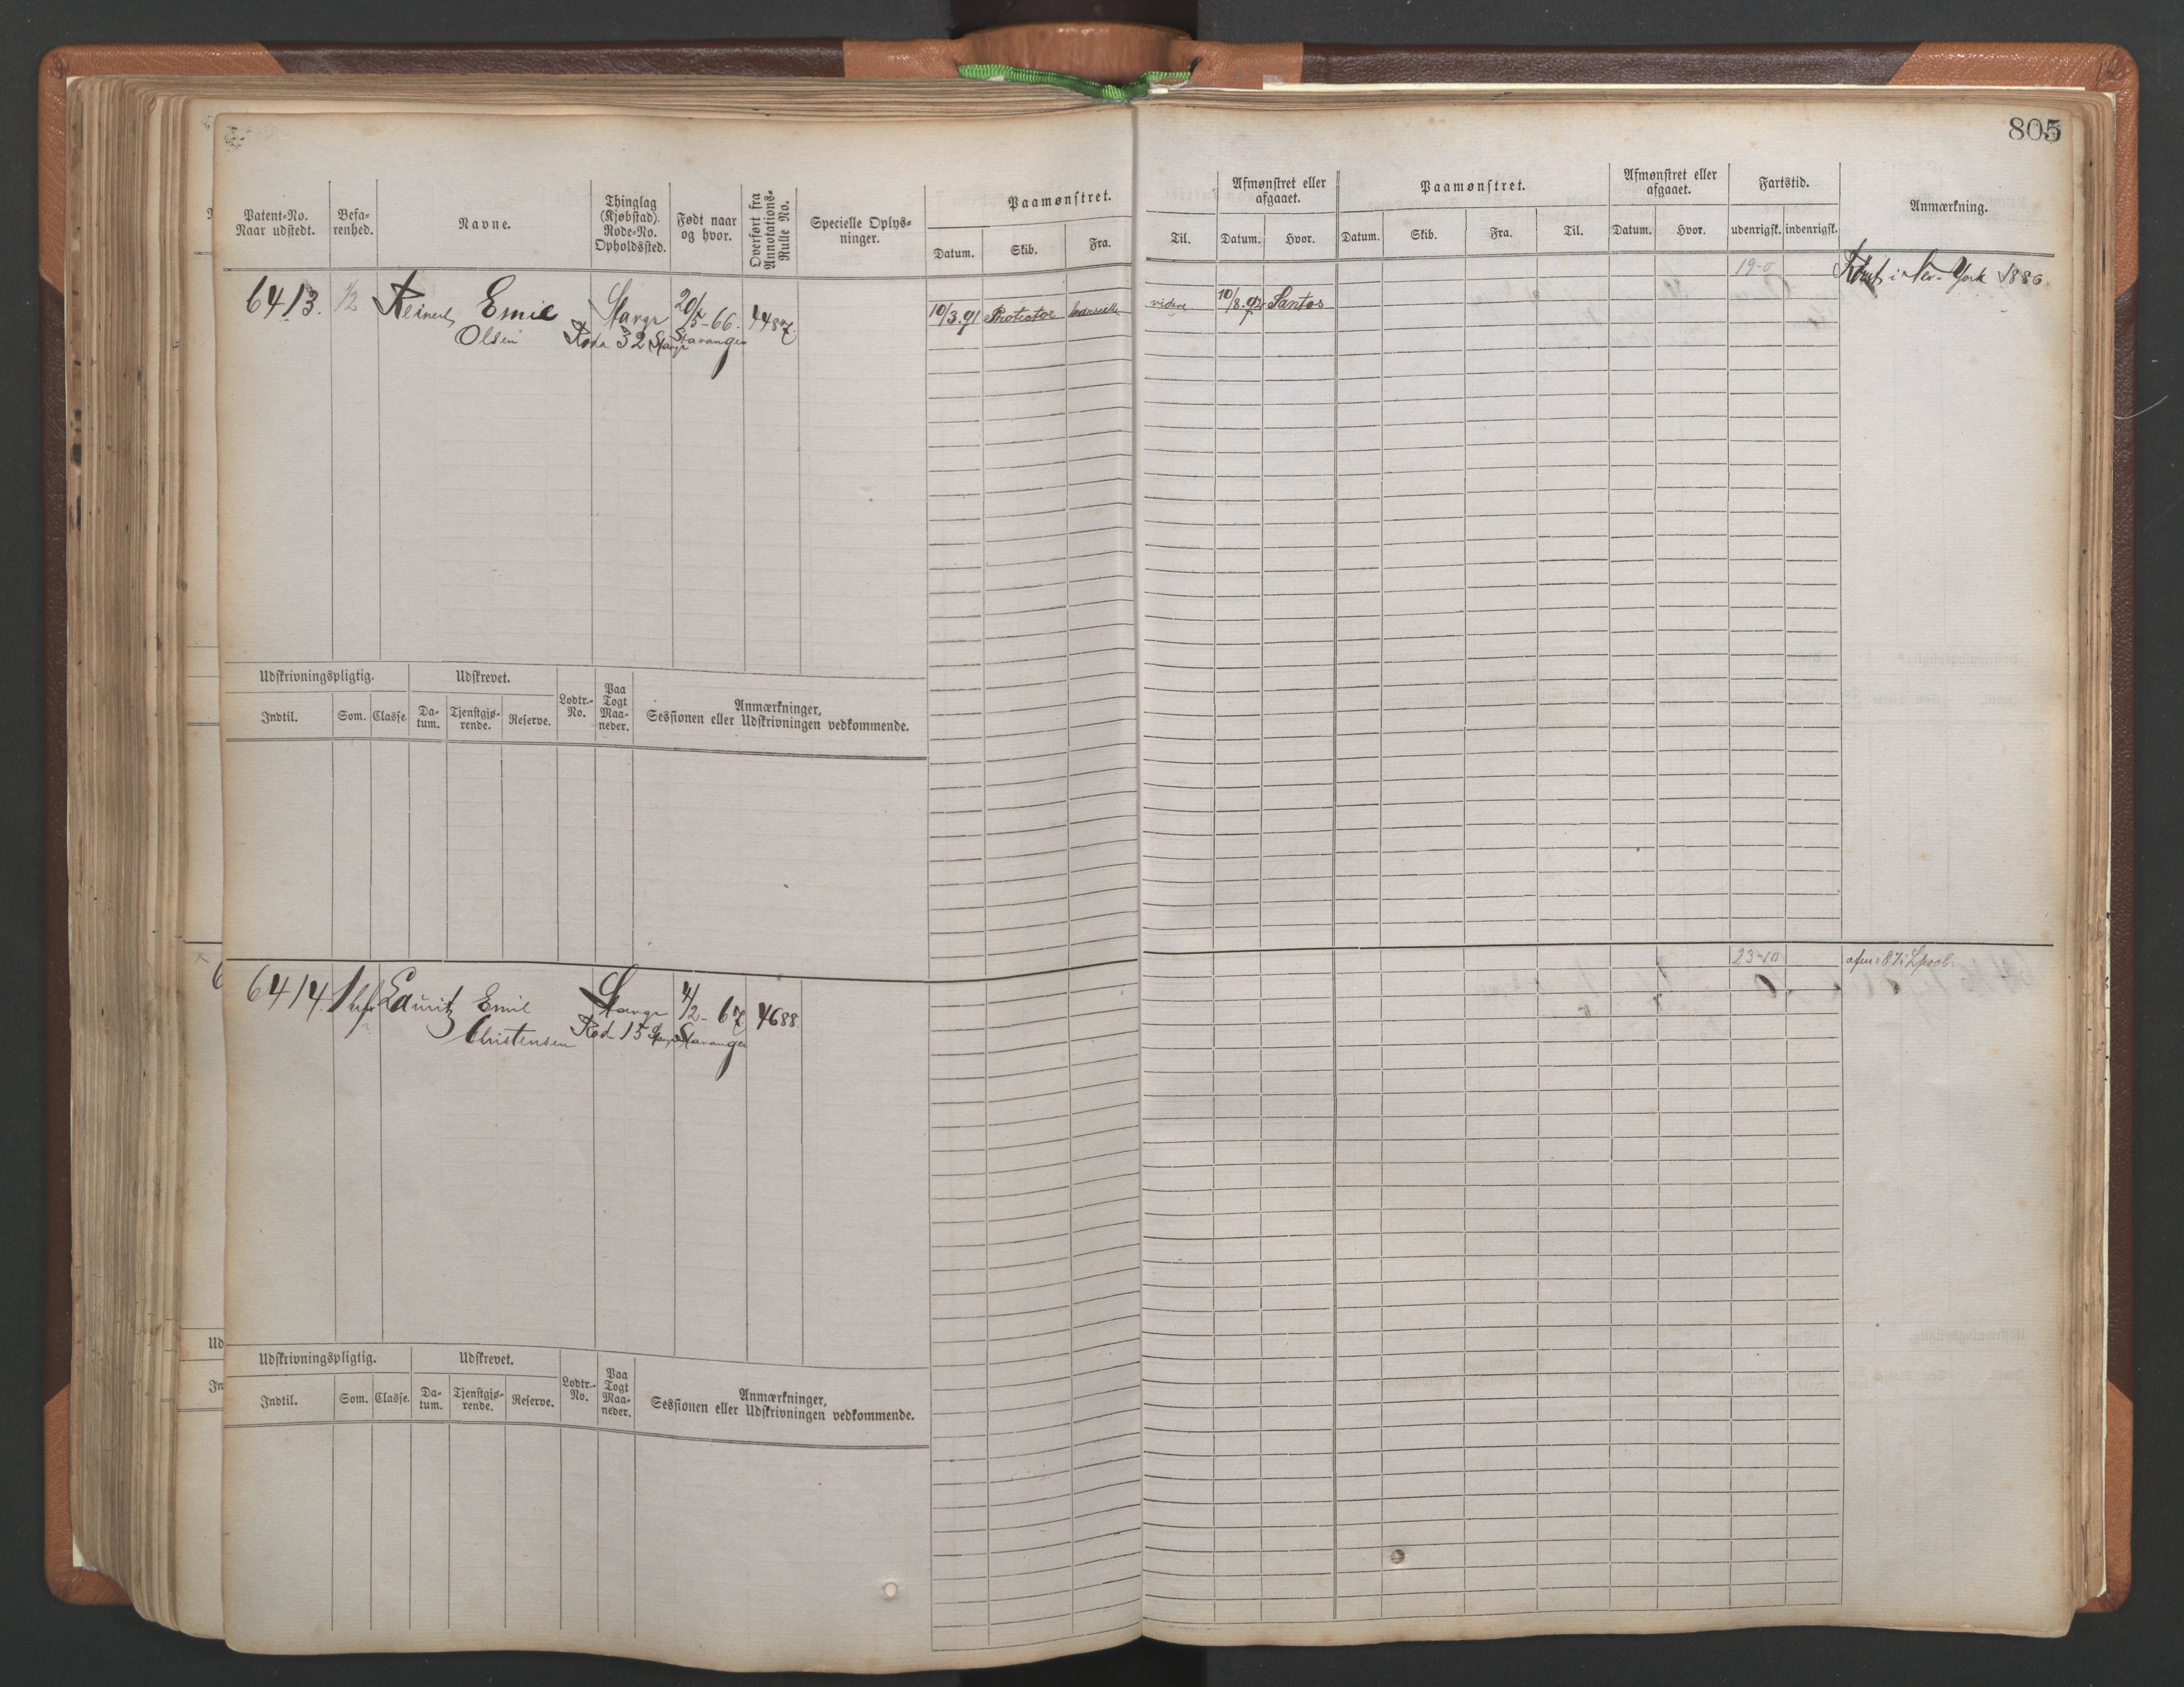 805
Patent-No.
Naar udstedt.
Befa-
renhed.
Navne.
Thinglag
(Kjøbstad).
Rode-No.
Opholdssted.
Født naar
og hvor.
Overført fra
Annotations-
Rulle No.
Specielle Oplys-
ninger.
Paamønstret.
Datum.
Skib.
Fra.
Til.
Afmønstret eller
afgaaet.
Datum.
Hvor.
Paamønstret.
Datum.
Skib.
Fra.
Til.
Afmønstret eller
afgaaet.
Datum.
Hvor.
Fartstid.
udenrigsk.
indenrigsk.
Anmærkning.
6413.
1/2
Reinert Emil
Olsen
Stavgr
Rode 32 Stavgr
20/5-66.
Stavanger
4487.
10/3.91
Protector
Marseille
videre
10/8.92
Santos
19-0
Rømt i New-York 1886.
Udskrivningspligtig.
Udskrevet.
Lodtr.-
No.
Paa
Togt
Maa-
neder.
Anmærkninger,
Sessionen eller Udskrivningen vedkommende.
Indtil.
Som.
Classe.
Da-
tum.
Tjenstgjø-
rende.
Reserve.
6414.
Lauritz Emil
Christensen
Stavgr
Rod 15 Stavgr
4/2-67
Stavanger
4688.
23-10
afm: 87 i Lpool.
Udskrivningspligtig.
Udskrevet.
Lodtr.-
No.
Paa
Togt
Maa-
neder.
Anmærkninger,
Sessionen eller Udskrivningen vedkommende.
Indtil.
Som.
Classe.
Da-
tum.
Tjenstgjø-
rende.
Reserve.